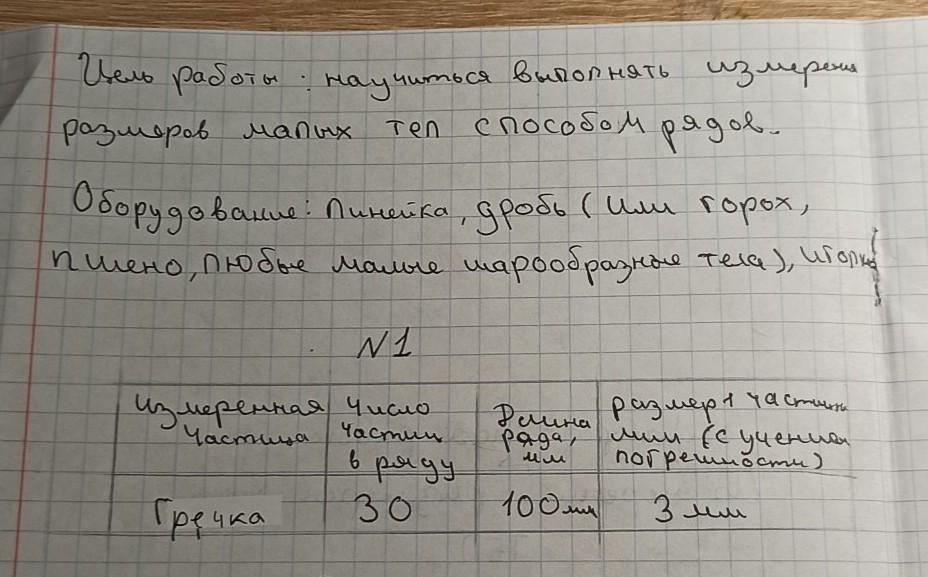 Цель работы: научиться выполнять измерения
размеров малых тел способом рядов.
Оборудование: линейка, дробь (или горох,
пшено, любые малые шарообразные тела), иголка
N1
Измеренная частица | Число частиц в ряду | Длина ряда, мм | размер 1 частицы мм (с учетом погрешности)
Гречка | 30 | 100 мм | 3 мм